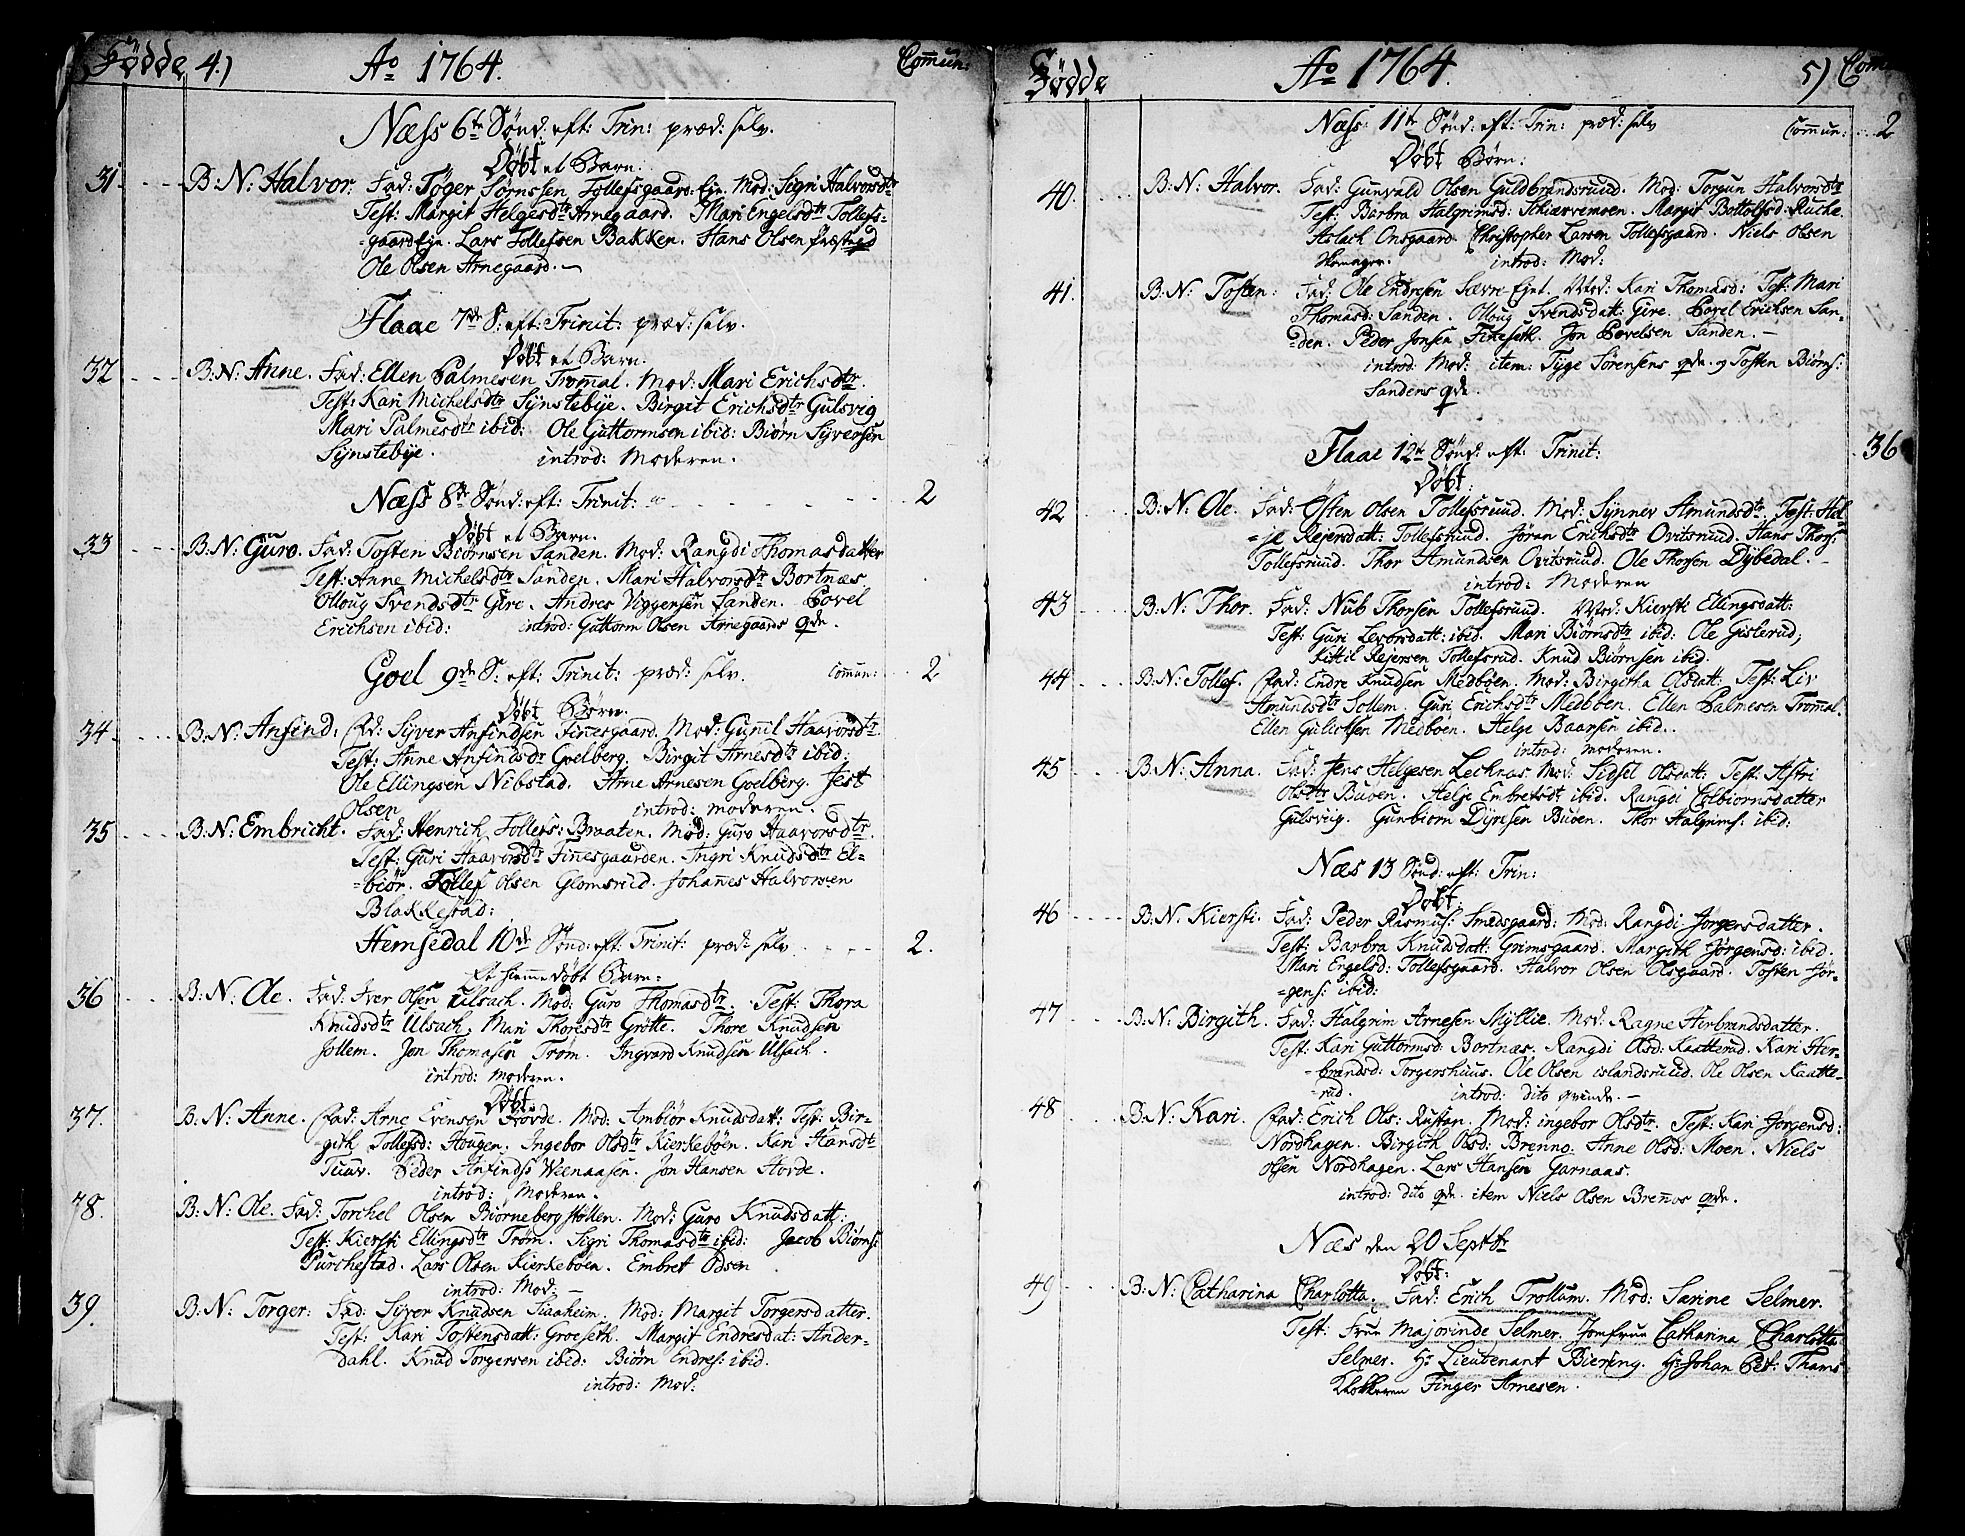 Födde 4.) Ao 1764. Commun:
Næss 6te Sønd: eft: Trin: præd: selv.
Døbt et Barn:
31. B:N: Halvor. Fad: Töger Sörnssen Tollefsgaard: Eje. Mod: Sigri Halvorsdtr
Test: Margit Helgesdtr Arnegaard. Mari Engelsdtr Tollefs-
-gaardEje. Lars Tollefsen Bakken. Hans Olsen Præstegd
Ole Olsen Arnegaard.
Flaae 7de S: eft: Trinit: præd: selv.
Døbt et Barn:
32 B:N: Anne. Fad: Ellen Palmesen Trommal. Mod: Mari Erichsdtr.
Test: Kari Michelsdtr Sÿnstebÿe. Birgit Erichsdtr Gulsvig
Mari Palmesdtr ibid: Ole Guttormsen ibid: Biørn Sÿversen
Sÿnstebÿe. introd: Moderen.
Næss 8de Sønd: eft: Trinit: 2
Døbt et Barn.
33 B:N: Guro. Fad: Tosten Biørnsen Sanden. Mod: Rangdi Thomasdatter
Test: Anne Michelsdtr Sanden. Mari Halvorsdtr Bortnæs.
Olloug Svendsdtr Gire. Andres Viggersen Sanden. Povel
Erichsen ibid: introd: Guttorm Olsen Arnegaards qde.
Goel 9de S: eft: Trinit: præd: selv. Commun: 2
Døbt Børn:
34 B:N: Anfind. Fad: Sÿver Anfindsen Finnesgaard. Mod: Gunil Haavorsdtr.
Test: Anne Anfindsdr Goelberg. Birgit Arnesdtr ibid:
Ole Ellingsen Nibstad. Arne Arnesen Goelberg. Jest
Olsen introd: moderen.
35 B:N: Embricht. Fad: Henrich Tollefs: Braaten. Mod: Guro Haavorsdtr.
Test: Guri Haavorsdtr Finnesgaarden. Ingri Knudsdtr El-
-biør. Tollef Olsen Glomsrud. Johannes Halvorsen
Blakkestad:
Hemsedal 10de Sønd: eft: Trinit: præd: selv. 2.
Et hiemmedøbt Barn:
36 B:N: Ole. Fad: Iver Olsen Ulsach. Mod: Guro Thomasdtr. Test: Thora
Knudsdtr Ulsach. Mari Thoresdtr Grötte. Thore Knudsen
Jollem. Jon Thomasen Trøm. Ingvard Knudsen Ulsach.
introd: Moderen.
Døbt.
37. B:N: Anne. Fad: Arne Evensen Hovde. Mod: Ambiør Knudsdatt: Test: Bir-
-gith Tollefsd: Hougen. Ingebor Olsdtr Kierkebøen. Kari Hansdt
Tuuv. Peder Anfinds Weenaasen. Jon Hansen Storde.
introd: Moderen.
38. B:N: Ole. Fad: Torchel Olsen Biörneberg støllen. Mod: Guro Knudsdatt:
Test: Kiersti Ellingsdtr Trøm. Sigri Thomasdtr ibid: Jacob Biørns:
Purchestad. Lars Olsen Kierkebøen. Embret Odsen
introd: Mod:
39. B:N: Torger: Fad: Sÿver Knudsen Skaaheim. Mod: Margit Torgersdatter.
Test: Kari Tostensdatt: Groeseth. Margit Endresdat: Ander-
dahl. Knud Torgersen ibid: Biørn Endres: ibid.
introd: Mod:
Födde Ao 1764. 5) Comm
Næss: 11te Sønd: eft: Trin: præd: selv Commun: 2
Døbt Børn:
40. B:N: Halvor. Fad: Gunvald Olsen Guldbrandsruud. Mod: Torgun Halvorsdtr
Test: Barbra Halgrimsd: Schiærremoen. Margit Bottolfsd: Ruche.
Aslach Onsgaard. Christopher Larsen Tollefsgaard. Niels Olsen
Skomager. introd: Mod:
41. B:N: Tosten: Fad: Ole Endresen Sævre Ejet. Mod: Kari Thomasd: Test: Mari
Thomasd: Sanden. Olloug Svendsdatt: Gire. Povel Erichsen San-
-den. Peder Jonsen Fikeseth. Jon Povelsen Sanden.
introd: Mod: item: Tÿge Sørensens qde. og Tosten Biörns:
Sandens qde.
Flaae 12te Sønd: eft: Trinit: 36
Døbt:
42 B:N: Ole. Fad: Östen Olsen Tollefsruud. Mod: Sÿnnev Amundsdtr. Test: Hel-
-je Rejersdatt: Tollefsruud. Jöran Erichsdtr Ovitsruud. Hans Thors:
Tollefsruud. Thor Amundsen Ovitsruud. Ole Thorsen Dÿbedal.
introd: Moderen
43 B:N: Thor. Fad: Nub Thorsen Tollefsruud. Mod: Kiersti Ellingsdatt:
Test: Guri Levorsdatt: ibid. Mari Biørnsdtr ibid: Ole Gislerud,
Kittil Rejersen Tollefsrud. Knud Biørnsen ibid.
44 B:N: Tollef. Fad: Endre Knudsen Medbøen. Mod: Birgitha Olsdatt: Test: Liv
Amundsdtr Sollem. Guri Erichsdtr Medbøen. Ellen Palmesen Trommal.
Ellen Gulicksen Medbøen. Helge Baarsen ibid.
introd: moderen.
45 B:N: Anna. Fad: Jens Helgesen Lecknas. Mod: Sidsel Olsdatt: Test: Astri
Olsdtr Buøen. Helje Embretsdt ibid. Rangdi Colbiornsdatter
Gulsvug. Gunbiorn Dÿresen Buøen. Thor Halgrims: ibid:
Næs 13 Sønd: eft: Trin:
Døbt:
46 B:N: Kiersti. Fad: Peder Rasmus: Smedsgaard: Mod: Rangdi Jorgersdatter.
Test: Barbra Knudsdatt: Grimsgaard. Margith Jørgensd: ibid.
Mari Engelsd: Tollefsgaard. Halvor Olsen Olsgaard. Tosten Jør-
-gens: ibid:
47 B:N: Birgith. Fad: Halgrim Arnesen Myllie. Mod: Ragne Herbrandsdatter.
Test: Kari Guttormsd: Bortnæs. Rangdi Olsd: Kaatterud. Kari Her-
-brandsd: Torgershuus. Ole Olsen islandsruud. Ole Olsen Kaatte-
-rud. introd: dito qvinde.
48 B:N: Kari. Fad: Erich Ols: Rustan. Mod: ingebor Olsdtr. Test: Kari Jörgensd:
Nordhagen. Birgith Olsd: Brenno. Anne Olsd: Moen. Niels
Olsen Nordhagen. Lars Hansen Garnaas.
introd: dito qde. item Niels Olsen Brennos qde.
Næs den 20 Septbr
Døbt:
49 B:N: Catharina Charlotta. Fad: Erich Trollum. Mod: Sarine Selmer.
Test: Frue Majorinde Selmer. Jomfrue Catharina Charlotta
Selmer. Hr Lieutenant Biering. Hr Johan Pet: Thams
Klokkeren Finger Arnesen.